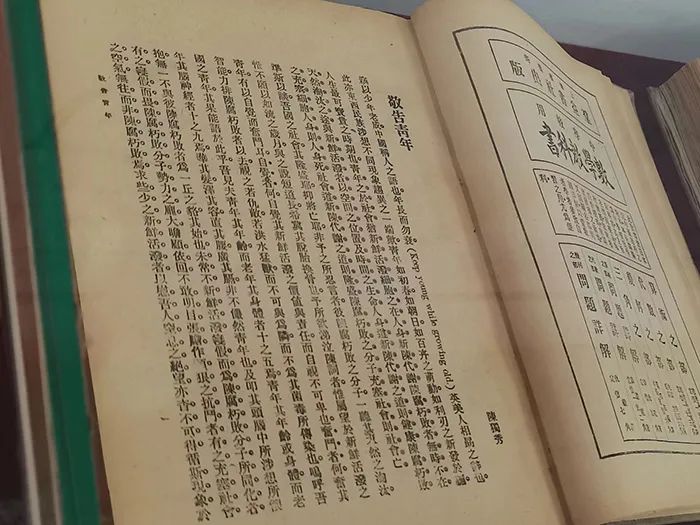 敬告青年
陳獨秀
竊以少年老成。中國稱人之語也。年長而勿衰。(Keep young while growing old)英美人相勗之辭也。
此亦東西民族涉想不同現象趨異之一端歟。青年如初春。如朝日。如百卉之萌動。如利刃之新發於硎。
人生最可寶貴之時期也。青年之於社會。猶新鮮活潑細胞之在人身。新陳代謝。陳腐朽敗者無時不在
天然淘汰之途。與新鮮活潑者以空間之位置及時間之生命。人身遵新陳代謝之道則健康。陳腐朽敗
之細胞充塞人身則人身死。社會遵新陳代謝之道則隆盛。陳腐朽敗之分子充塞社會則社會亡。
準斯以談。吾國之社會。其隆盛耶。抑將亡耶。非予之所忍言者。彼陳腐朽敗之分子。一聽其天然之淘汰。
雅不願以如流之歲月。與之說短道長。希冀其脫胎換骨也。予所欲涕泣陳詞者。惟屬望於新鮮活潑之
青年。有以自覺而奮鬥耳。自覺者何。自覺其新鮮活潑之價值與責任。而自視不可卑也。奮鬥者何。奮其
智能。力排陳腐朽敗者以去。視之若仇敵。若洪水猛獸。而不可與為鄰。而不為其菌毒所傳染也。嗚呼。吾
國之青年。其果能語於此乎。吾見夫青年其年齡。而老年其身體者十之五焉。青年其年齡或身體。而老
年其腦神經者十之九焉。華其髮。澤其容。直其腰。廣其膈。非不儼然青年也。及叩其頭腦中所涉想所懷
抱。無一不與彼陳腐朽敗者為一丘之貉。其始也未嘗不新鮮活潑。寖假而為陳腐朽敗分子所同化者
有之。寖假而畏陳腐朽敗分子勢力之龐大。瞻顧依回。不敢明目張膽作頑狠之抗鬥者有之。充塞社會
之空氣。無往而非陳腐朽敗焉。求些少之新鮮活潑者。以慰吾人窒息之絕望。亦杳不可得。循斯現象。於
敬告青年
版
用
數學教科書
問題詳解
問題詳解